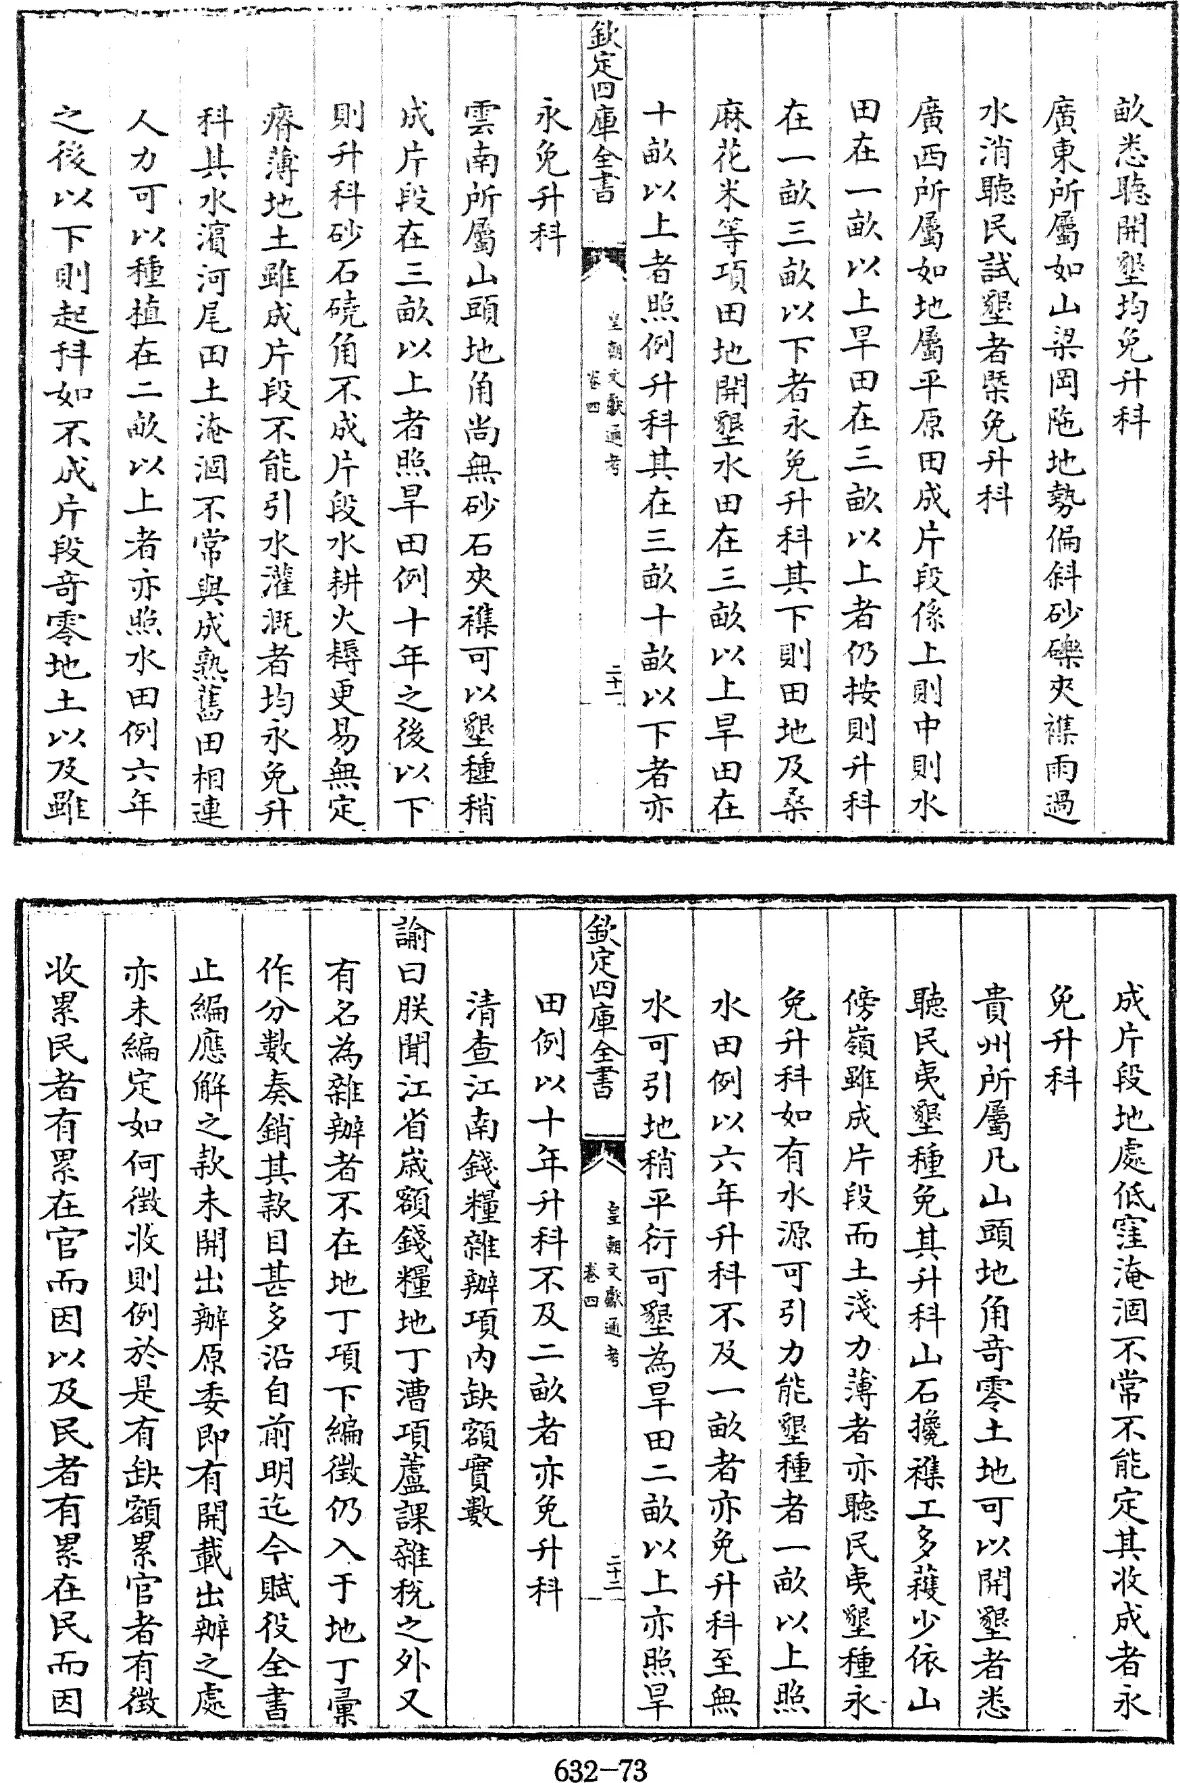 畝悉聽開墾均免升科
廣東所屬如山梁岡陁地勢偏斜砂礫夾襍雨過
水消聽民試墾者槩免升科
廣西所屬如地屬平原田成片段係上則中則水
田在一畝以上旱田在三畝以上者仍按則升科
在一畝三畝以下者永免升科其下則田地及桑
麻花米等項田地開墾水田在三畝以上旱田在
十畝以上者照例升科其在三畝十畝以下者亦
欽定四庫全書
皇朝文獻通考
卷四
二十一
永免升科
雲南所屬山頭地角尚無砂石夾襍可以墾種稍
成片段在三畝以上者照旱田例十年之後以下
則升科砂石磽角不成片段水耕火耨更易無定
瘠薄地土雖成片段不能引水灌溉者均永免升
科其水濵河尾田土淹涸不常與成熟舊田相連
人力可以種植在二畝以上者亦照水田例六年
之後以下則起科如不成片段奇零地土以及雖
成片段地處低窪淹涸不常不能定其收成者永
免升科
貴州所屬凡山頭地角奇零土地可以開墾者悉
聽民夷墾種免其升科山石攙襍工多穫少依山
傍嶺雖成片段而土淺力薄者亦聽民夷墾種永
免升科如有水源可引力能墾種者一畝以上照
水田例以六年升科不及一畝者亦免升科至無
水可引地稍平衍可墾為旱田二畝以上亦照旱
欽定四庫全書
皇朝文獻通考
卷四
二十二
田例以十年升科不及二畝者亦免升科
清查江南錢糧雜辦項內缺額實數
諭曰朕聞江省歲額錢糧地丁漕項蘆課雜稅之外又
有名為雜辦者不在地丁項下編徵仍入于地丁彚
作分數奏銷其款目甚多沿自前明迄今賦役全書
止編應解之款未開出辦原委即有開載出辦之處
亦未編定如何徵收則例於是有缺額累官者有徵
收累民者有累在官而因以及民者有累在民而因
632-73